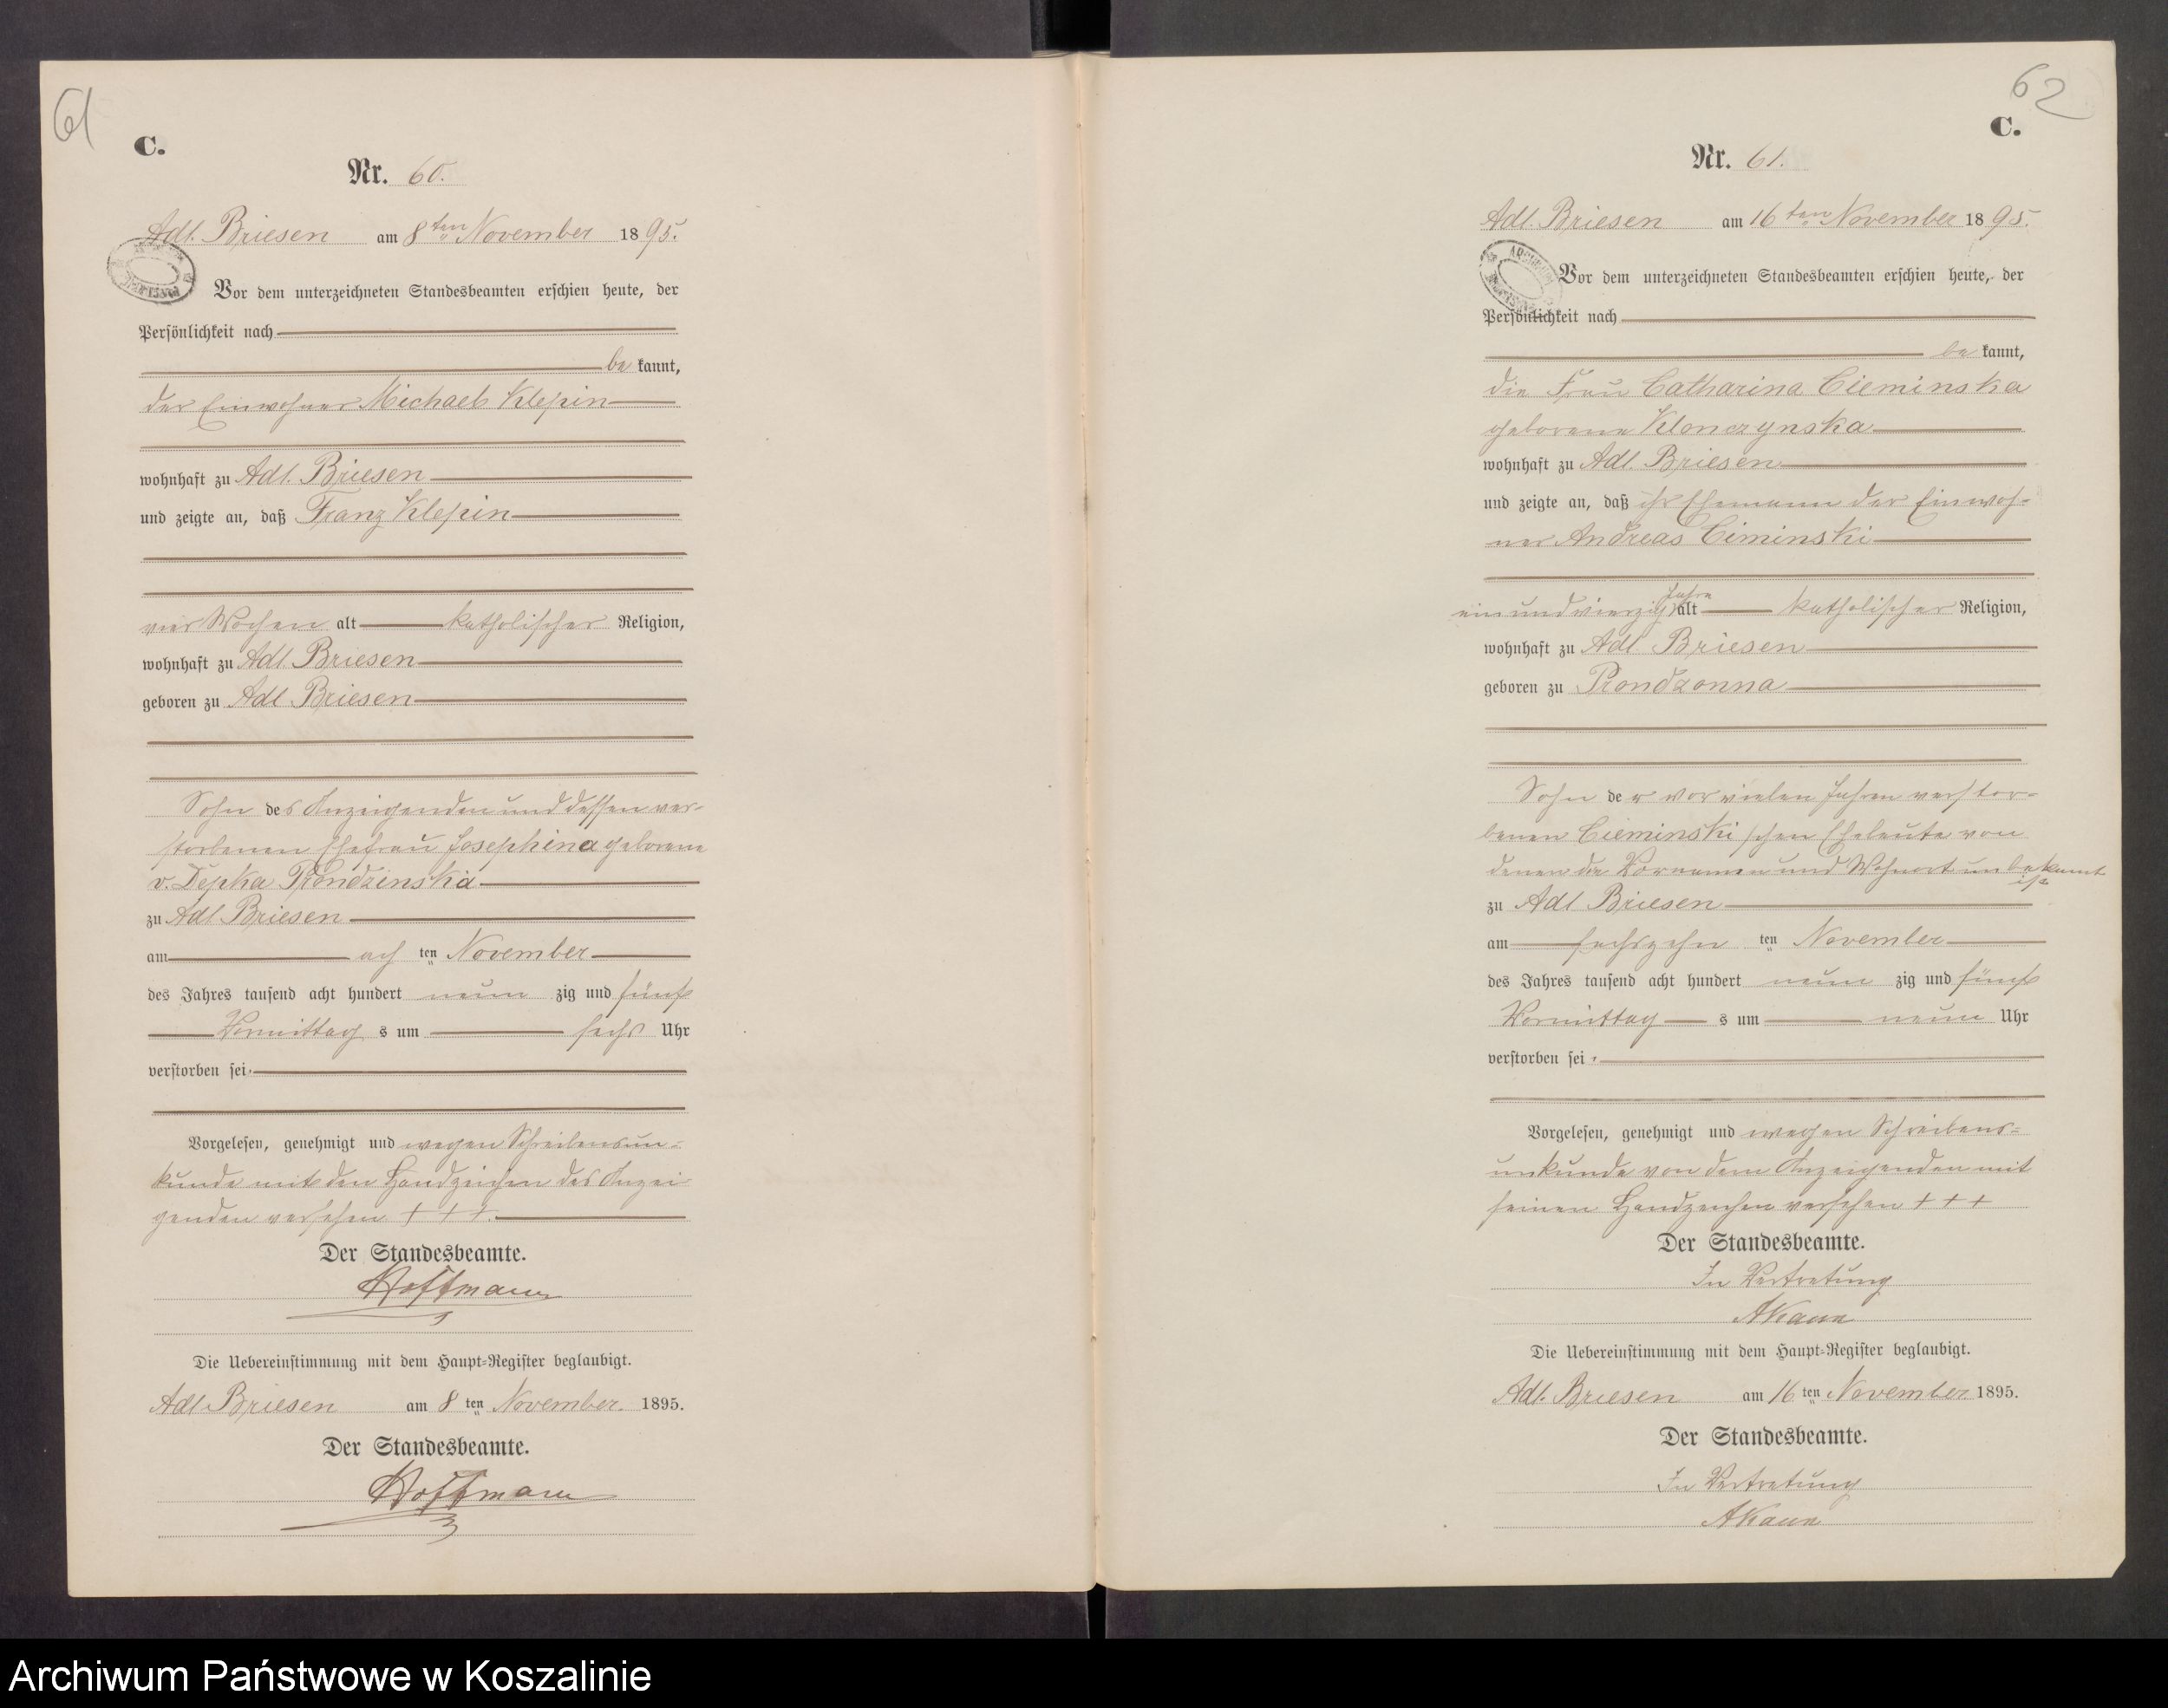 61
C.
Nr. 60.
Adl. Briesen am 8ten November 1895.
Vor dem unterzeichneten Standesbeamten erschien heute, der
Persönlichkeit nach
be kannt,
der Einwohner Michael Klepin
wohnhaft zu Adl. Briesen
und zeigte an, daß Franz Klepin
vier Wochen alt katholischer Religion,
wohnhaft zu Adl. Briesen
geboren zu Adl Briesen
Sohn des Anzeigenden und dessen ver-
storbenen Ehefrau Josephina geborene
v. Depka Prondzinska
zu Adl. Briesen
am ach ten November
des Jahres tausend acht hundert neun zig und fünf
Vormittag s um sechs Uhr
verstorben sei.
Vorgelesen, genehmigt und wegen Schreibensun-
kunde mit den Handzeichen des Anzei-
genden versehen +++.
Der Standesbeamte.
Hoffmann
Die Uebereinstimmung mit dem Haupt-Register beglaubigt.
Adl. Briesen am 8 ten November. 1895.
Der Standesbeamte.
Hoffmann
62
C.
Nr. 61.
Adl. Briesen am 16ten November 1895.
Vor dem unterzeichneten Standesbeamten erschien heute, der
Persönlichkeit nach
be kannt,
die Frau Catharina Cieminska
geborene Klonczynska
wohnhaft zu Adl. Briesen
und zeigte an, daß ihr Ehemann der Einwoh-
ner Andreas Ciminski
einundvierzig Jahre alt katholischer Religion,
wohnhaft zu Adl. Briesen
geboren zu Prondzonna
Sohn der vor vielen Jahren verstor-
benen Cieminski schen Eheleute von
denen der Vornamen und Wohnort unbekannt
ist
zu Adl Briesen
am sechszehn ten November
des Jahres tausend acht hundert neun zig und fünf
Vormittag s um neun Uhr
verstorben sei.
Vorgelesen, genehmigt und wegen Schreibens-
unkunde von dem Anzeigenden mit
seinen Handzeichen versehen +++
Der Standesbeamte.
In Vertretung
Die Uebereinstimmung mit dem Haupt-Register beglaubigt.
Adl. Briesen am 16 ten November 1895.
Der Standesbeamte.
In Vertretung
Archiwum Państwowe w Koszalinie